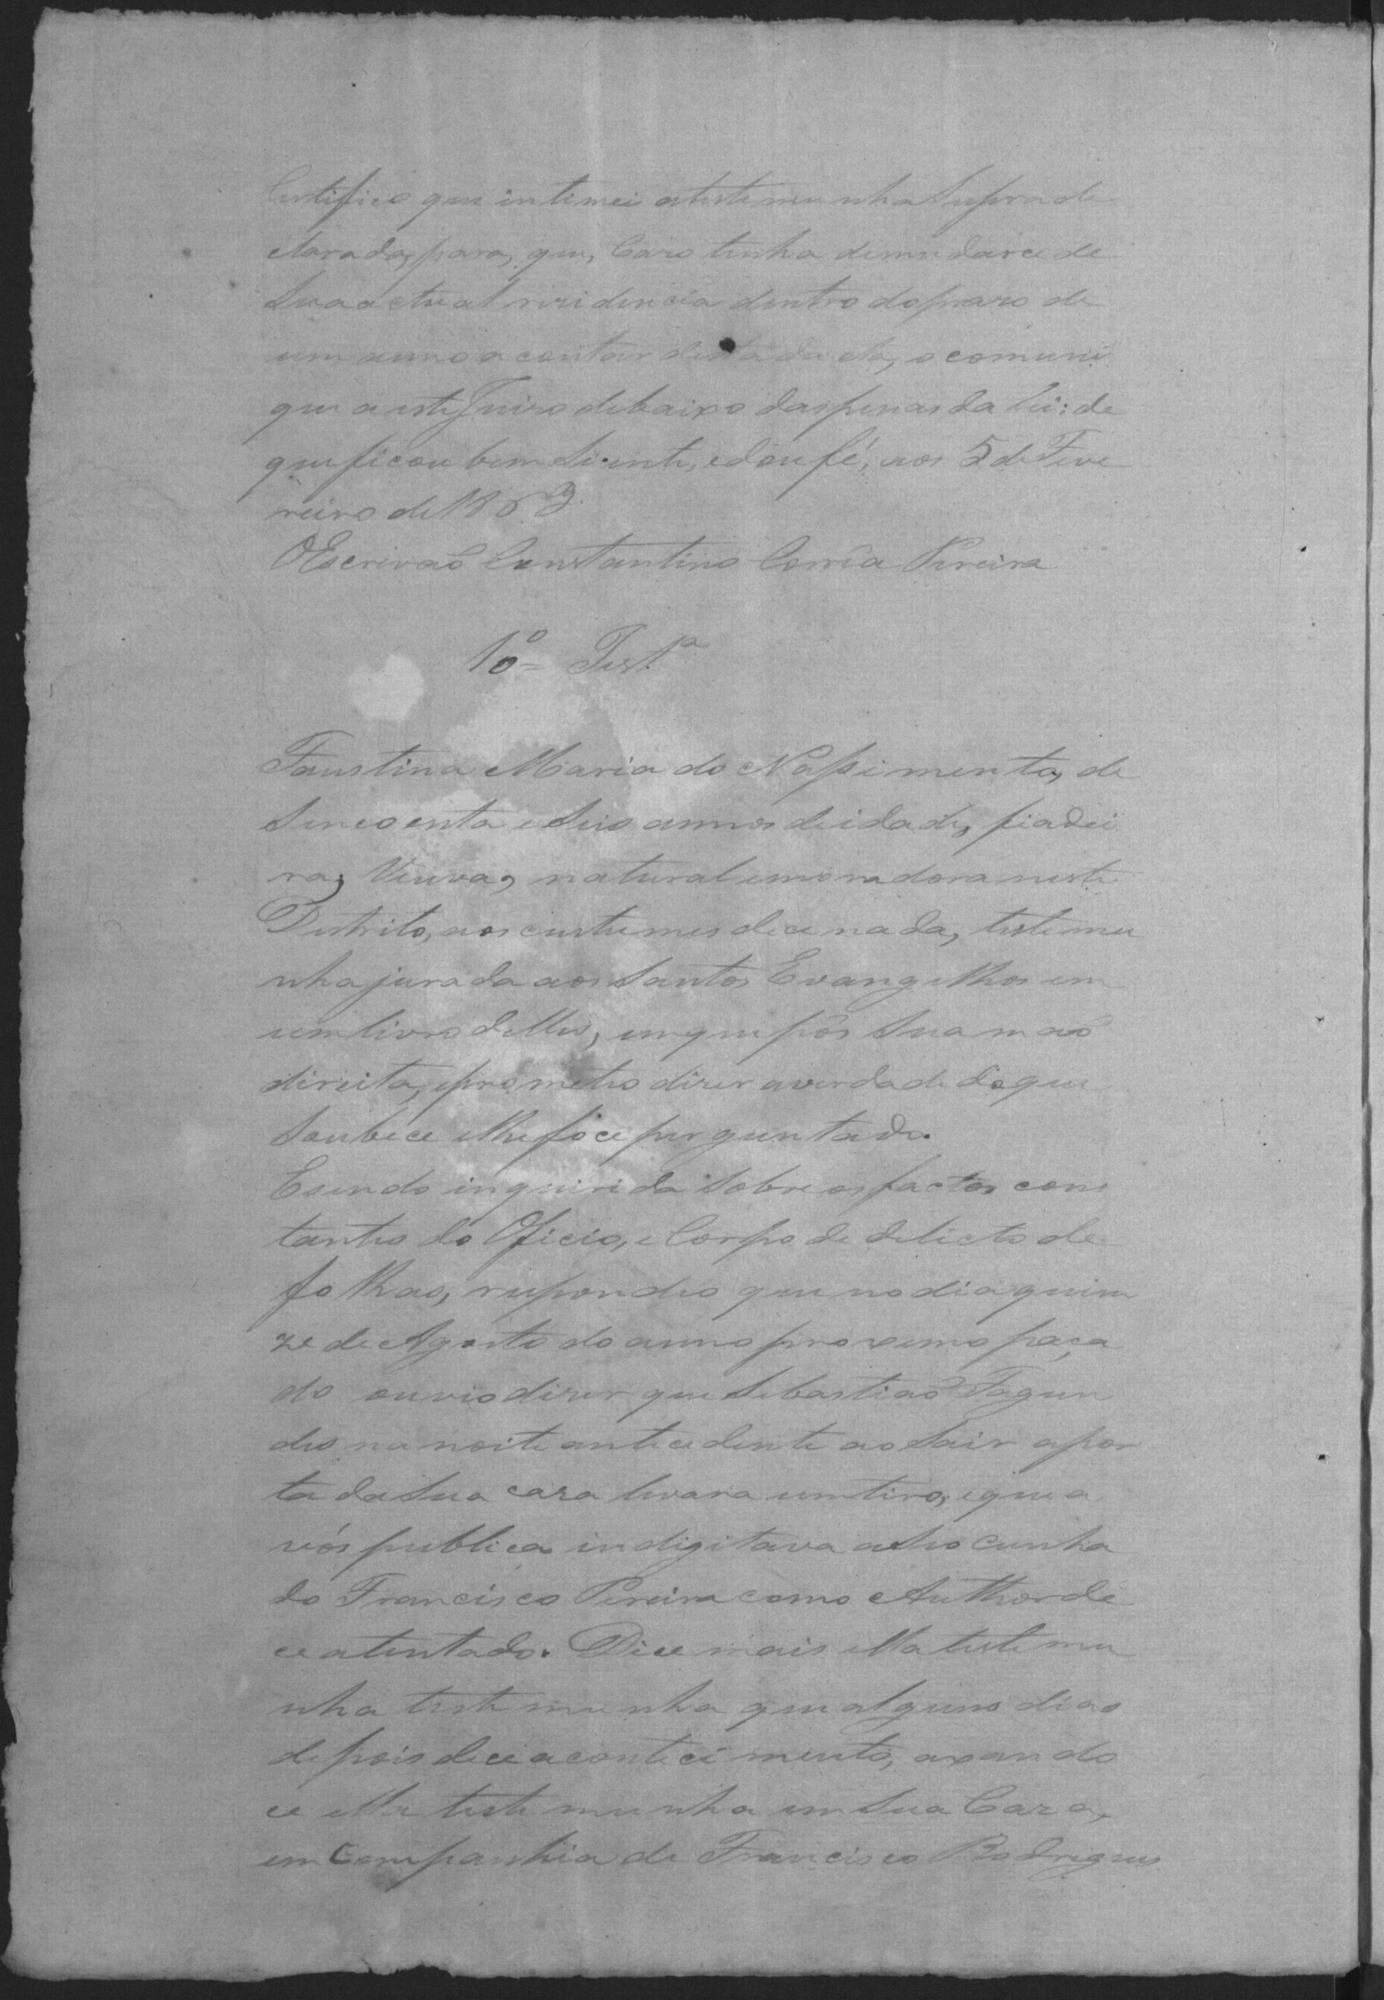 Certifico que intimei atestemunha Suprade
clarada, para, que, Cazo tenha demudarce de
Sua actual rezidencia dentro doprazo de
um anno a contar desta data, o comuni
que a este Juizo debaixo das penas da Lei: de
que ficou bem Siente, edou fé, aos 5 de Feve
reiro de 186
OEscrivaõ Constantino Corrêa Pereira
10ª Testª
Faustina Maria do Nassimento, de
Sincoenta e Seis annos de idade, fiadei
ra, Viuva, natural emoradora neste
Destrito, aos custumes dice nada, testemu
nha jurada aos Santos Evangelhos em
um livro delles, emque pôs Sua maõ
direita, eprometeo dizer averdade doque
Soubece elhefoce perguntado.
Esendo inquirida Sobre os factos cons
tantes do Oficio, e Corpo de delicto de
folhas, respondeo que no dia quin
ze de Agosto do anno proximo paça
do ouvio dizer que Sebastiaõ Fagun
des na noite antecedente ao Sair apor
ta da Sua caza levara um tiro, eque a
vós publica indigitava aSeo cunha
do Francisco Pereira como Author de
ce atentado. Dice mais ella testemu
nha testemunha que alguns dias
depois dece acontecimento, axando
ce ella testemunha em Sua Caza,
em Companhia de Francisco Rodrigues